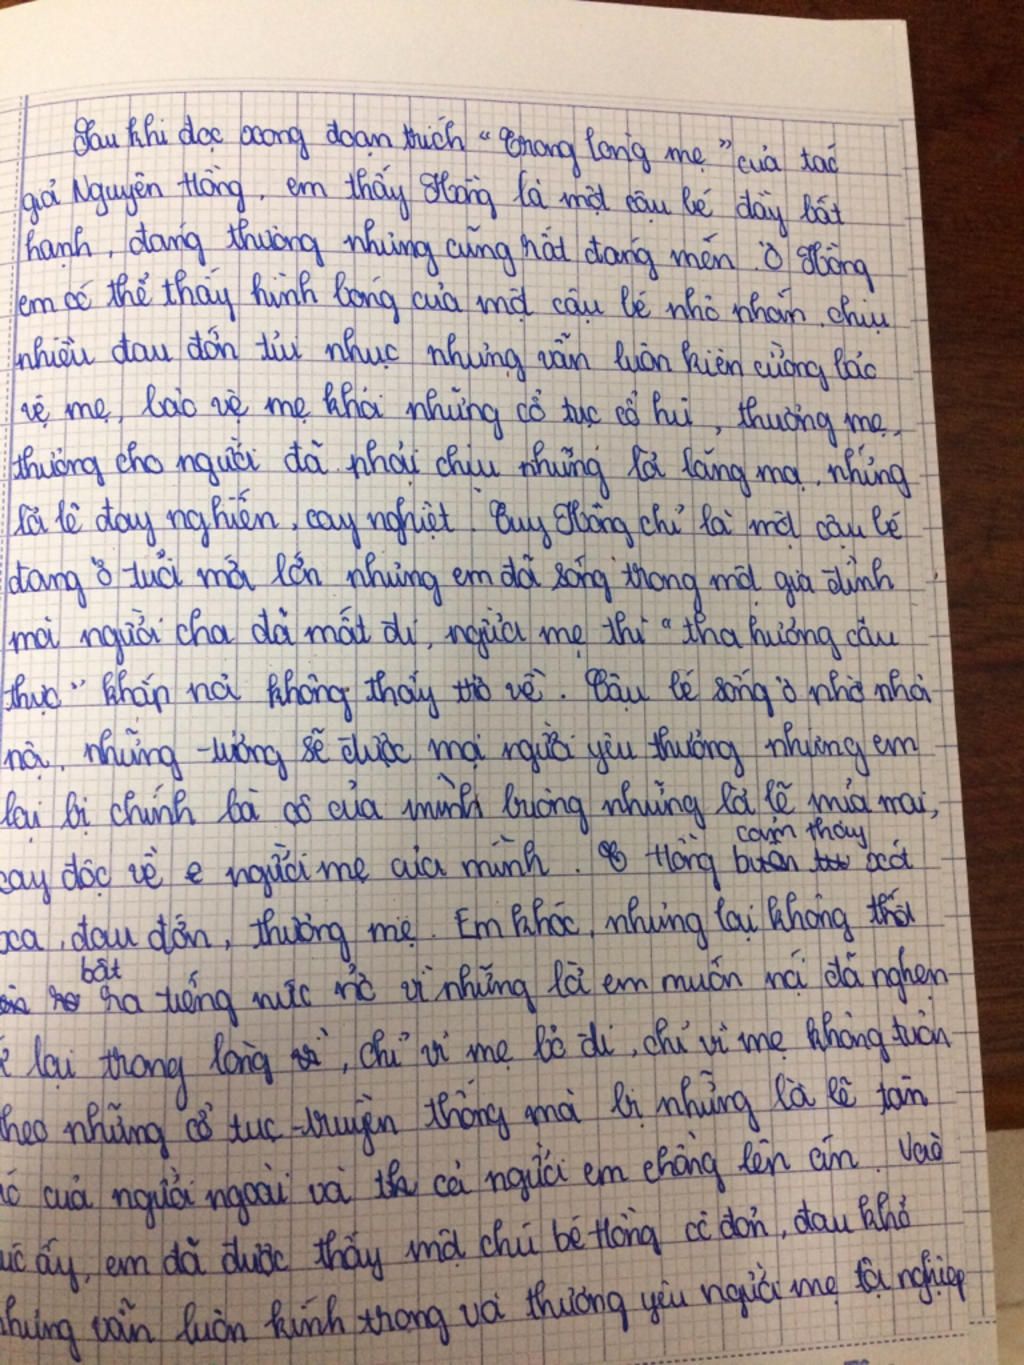 Sau khi đọc xong đoạn trích "Trong lòng mẹ" của tác
giả Nguyên Hồng, em thấy Hồng là một cậu bé đầy bất
hạnh, đáng thương nhưng cũng rất đáng mến. Ở Hồng
em có thể thấy hình bóng của một cậu bé nhỏ nhắn, chịu
nhiều đau đớn tủi nhục nhưng vẫn luôn kiên cường bảo
vệ mẹ, bảo vệ mẹ khỏi những cổ tục cổ hủi, thương mẹ,
thương cho người đã phải chịu những lời lăng mạ, những
lời lẽ đay nghiến, cay nghiệt. Tuy Hồng chỉ là một cậu bé
đang ở tuổi mới lớn nhưng em đã sống trong một gia đình
mà người cha đã mất đi, người mẹ thì "tha hương cầu
thực" khắp nơi không thấy trở về. Cậu bé sống ở nhờ nhà
nội, những tưởng sẽ được mọi người yêu thương nhưng em
lại bị chính bà cô của mình buông những lời lẽ mỉa mai,
cay độc về e người mẹ của mình. Hồng cảm thấy xót
xa, đau đớn, thương mẹ. Em khóc, nhưng lại không thể
bật ra tiếng nức nở vì những lời em muốn nói đã nghẹn
lại trong lòng, chỉ vì mẹ bỏ đi, chỉ vì mẹ không tuân
theo những cổ tục truyền thống mà bị những lời lẽ tàn
của người ngoài và cả người em chồng lên án. Vào
lúc ấy, em đã được thấy một chú bé Hồng cô đơn, đau khổ
nhưng vẫn luôn kính trọng và thương yêu người mẹ tội nghiệp